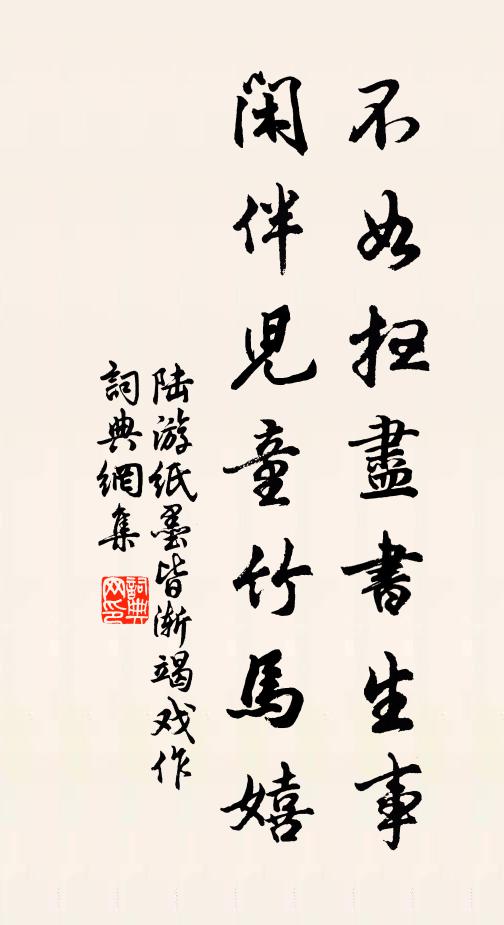 不如扫盡書生事
閑伴兒童竹馬嬉
陆游紙墨皆渐竭戏作
詞典網集
詞典网印